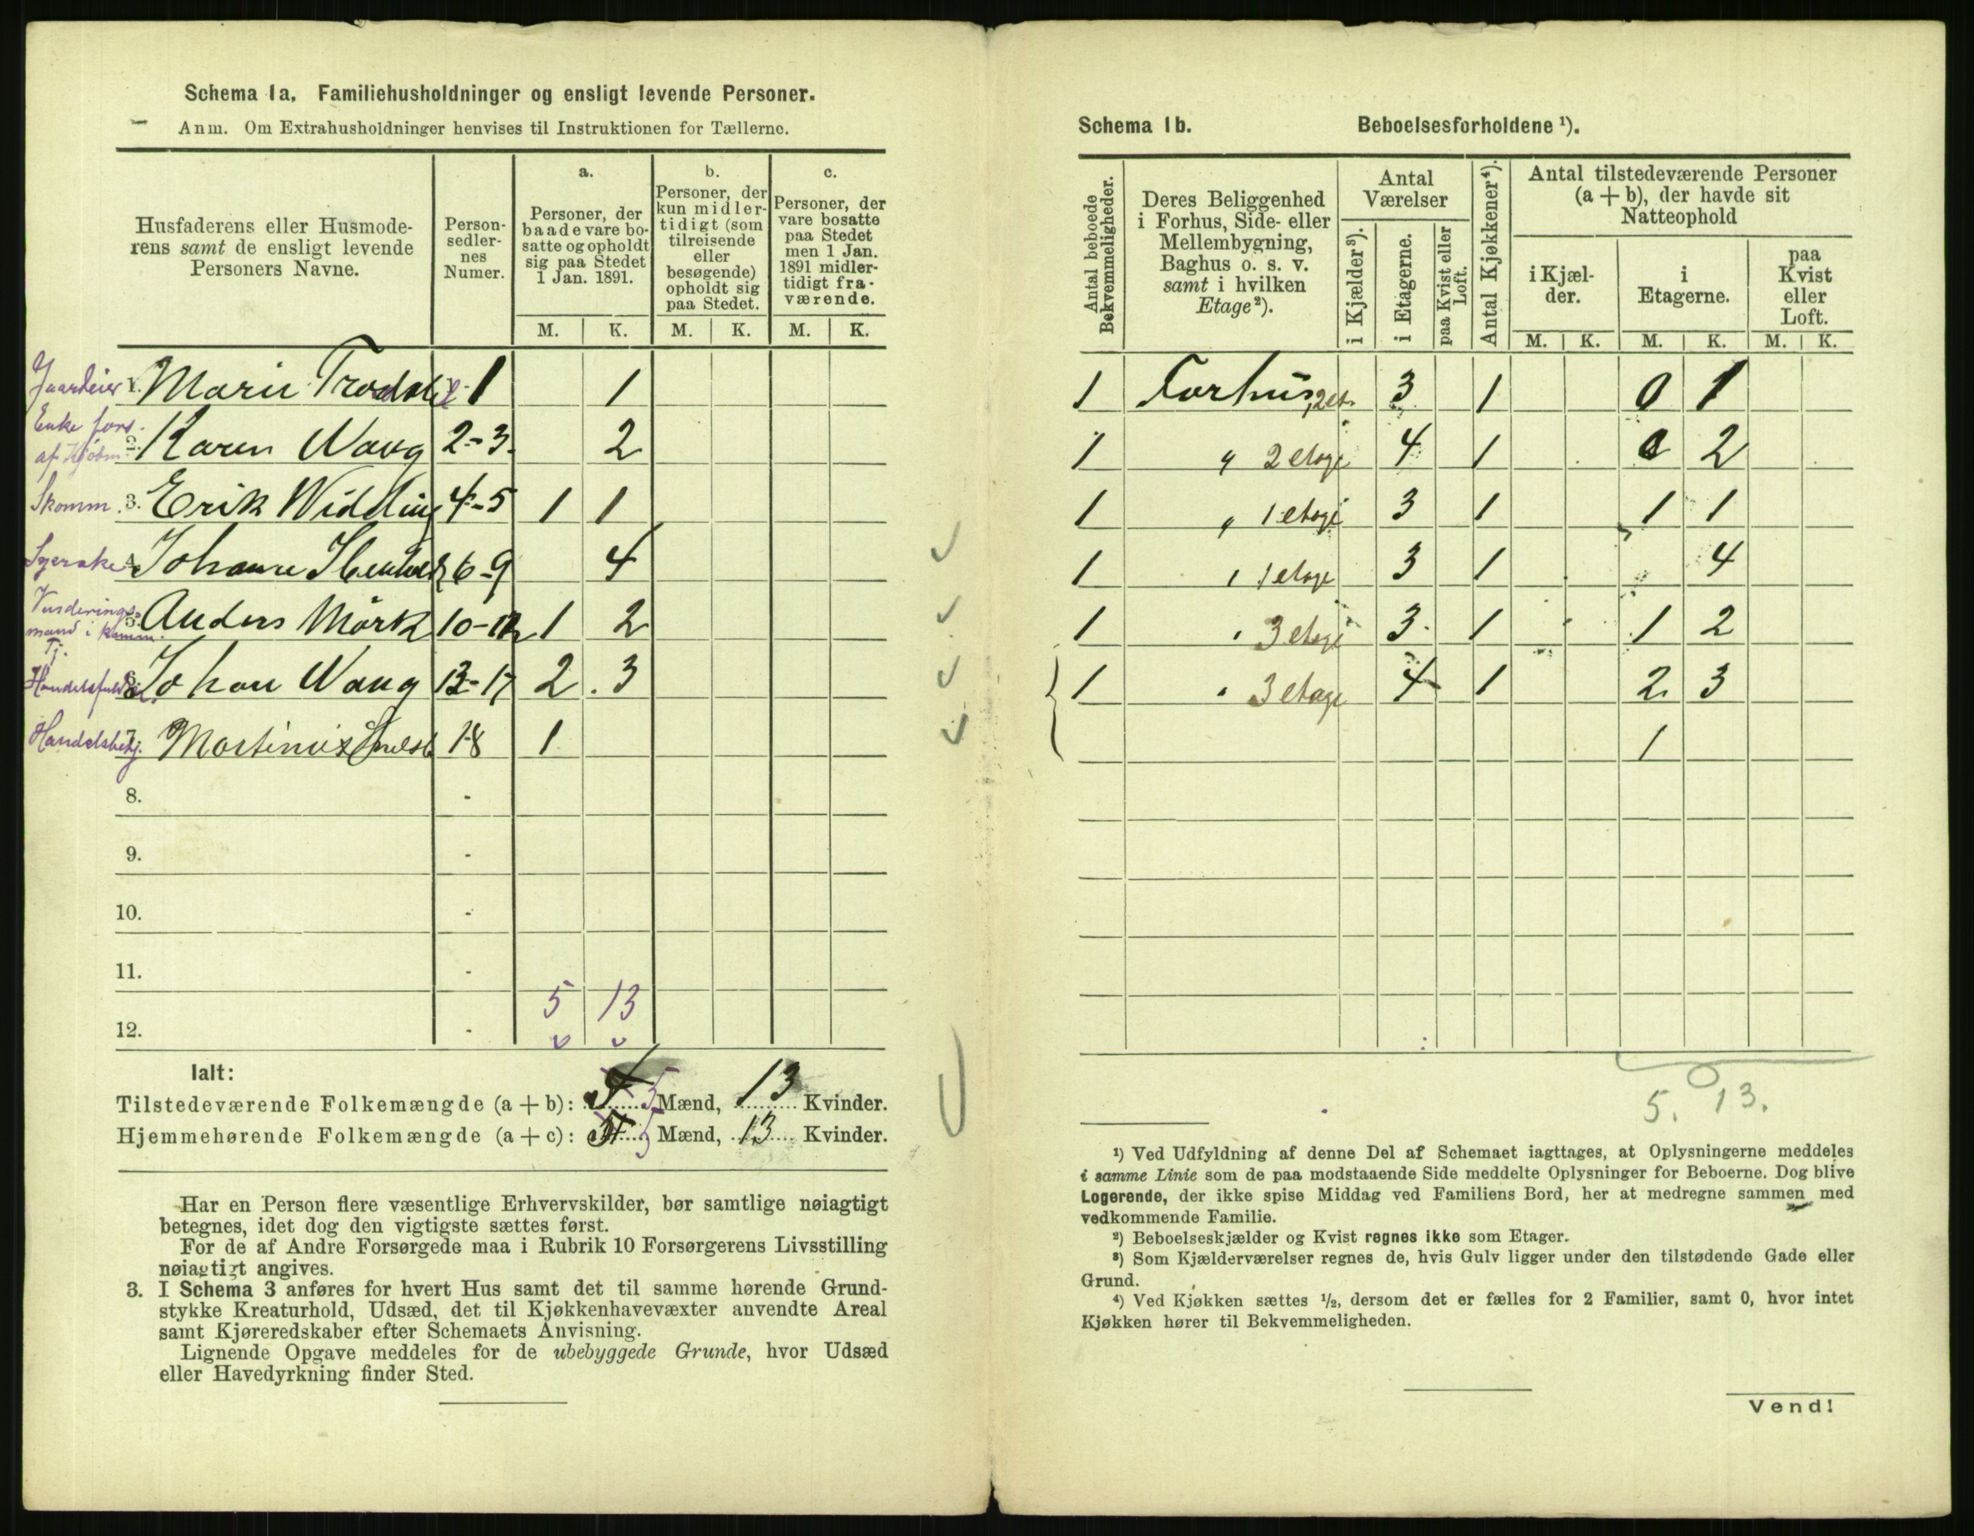 Schema 1a. Familiehusholdninger og ensligt levende Personer.
Anm. Om Extrahusholdninger henvises til Instruktionen for Tællerne.
Husfaderens eller Husmode-
rens samt de ensligt levende
Personers Navne.
Person-
sedler-
nes
Numer.
a.
Personer, der
baade vare bo-
satte og opholdt
sig paa Stedet
1 Jan. 1891.
b.
Personer, der
kun midler-
tidigt (som
tilreisende
eller
besøgende)
opholdt sig
paa Stedet.
c.
Personer, der
vare bosatte
paa Stedet
men 1 Jan.
1891 midler-
tidigt fra-
værende.
M. K. M. K. M. K.
Gaardeier 1. Marie 1 1
Enke fors. af Kjøbm. 2. Karen Waug 2-3. 2
Skomm. 3. Erik 4-5 1 1
Syerske 4. Johanne 6-9 4
Vurderings-
mand i 5. Anders Mörk 10-12 1 2
6. Johan Waug 13-17 2. 3
Handelsbetj. 7. Martinus 18 1
8. -
9. -
10. -
11. -
5 13
12. -
Ialt:
Tilstedeværende Folkemængde (a + b): 5 Mænd, 13 Kvinder.
Hjemmehørende Folkemængde (a + c): 5 Mænd, 13 Kvinder.
Har en Person flere væsentlige Erhvervskilder, bør samtlige nøiagtigt
betegnes, idet dog den vigtigste sættes først.
For de af Andre Forsørgede maa i Rubrik 10 Forsørgerens Livsstilling
nøiagtigt angives.
3. I Schema 3 anføres for hvert Hus samt det til samme hørende Grund-
stykke Kreaturhold, Udsæd, det til Kjøkkenhavevæxter anvendte Areal
samt Kjøreredskaber efter Schemaets Anvisning.
Lignende Opgave meddeles for de ubebyggede Grunde, hvor Udsæd
eller Havedyrkning finder Sted.
Schema 1b. Beboelsesforholdene ¹).
Antal beboede
Bekvemmeligheder.
Deres Beliggenhed
i Forhus, Side- eller
Mellembygning,
Baghus o. s. v.
samt i hvilken
Etage²).
Antal
Værelser
i Kjælder³).
i Etagerne.
paa Kvist eller
Loft.
Antal Kjøkkener⁴).
Antal tilstedeværende Personer
(a + b), der havde sit
Natteophold
i Kjæl-
der.
i
Etagerne.
paa
Kvist
eller
Loft.
M. K. M. K. M. K.
1 Forhus, 2et. 3 1 0 1
1 " 2 etage 4 1 0 2
1 " 1 etage 3 1 1 1
1 " 1 etage 3 1 4
1 " 3 etage 3 1 1 2
1 " 3 etage 4 1 2 3
1
5. 13.
¹) Ved Udfyldning af denne Del af Schemaet iagttages, at Oplysningerne meddeles
i samme Linie som de paa modstaaende Side meddelte Oplysninger for Beboerne. Dog blive
Logerende, der ikke spise Middag ved Familiens Bord, her at medregne sammen med
vedkommende Familie.
²) Beboelseskjælder og Kvist regnes ikke som Etager.
³) Som Kjælderværelser regnes de, hvis Gulv ligger under den tilstødende Gade eller
Grund.
⁴) Ved Kjøkken sættes ½, dersom det er fælles for 2 Familier, samt 0, hvor intet
Kjøkken hører til Bekvemmeligheden.
Vend!